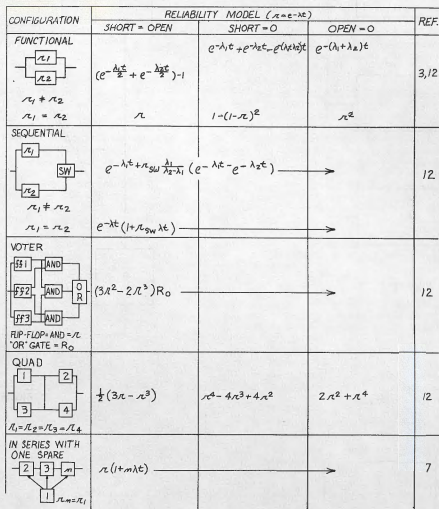 RELIABILITY MODEL (r = e^-λt)
CONFIGURATION
SHORT = OPEN
SHORT = 0
OPEN = 0
REF.
FUNCTIONAL
r1
r2
r1 ≠ r2
r1 = r2
(e^-λ1t/2 + e^-λ2t/2)-1
e^-λ1t + e^-λ2t - e^(λ1+λ2)t
e^-(λ1+λ2)t
3,12
r
1-(1-r)^2
r^2
SEQUENTIAL
r1
SW
r2
r1 ≠ r2
e^-λ1t + r_SW λ1/(λ2-λ1) (e^-λ1t - e^-λ2t)
12
r1 = r2
e^-λt (1+r_SW λt)
VOTER
ff1
AND
ff2
AND
OR
ff3
AND
(3r^2 - 2r^3) R0
12
FLIP-FLOP+AND = r
"OR" GATE = R0
QUAD
1
2
3
4
r1=r2=r3=r4
1/2 (3r - r^3)
r^4 - 4r^3 + 4r^2
2r^2 + r^4
12
IN SERIES WITH
ONE SPARE
2
3
n
1
rn=r1
r(1+nλt)
7